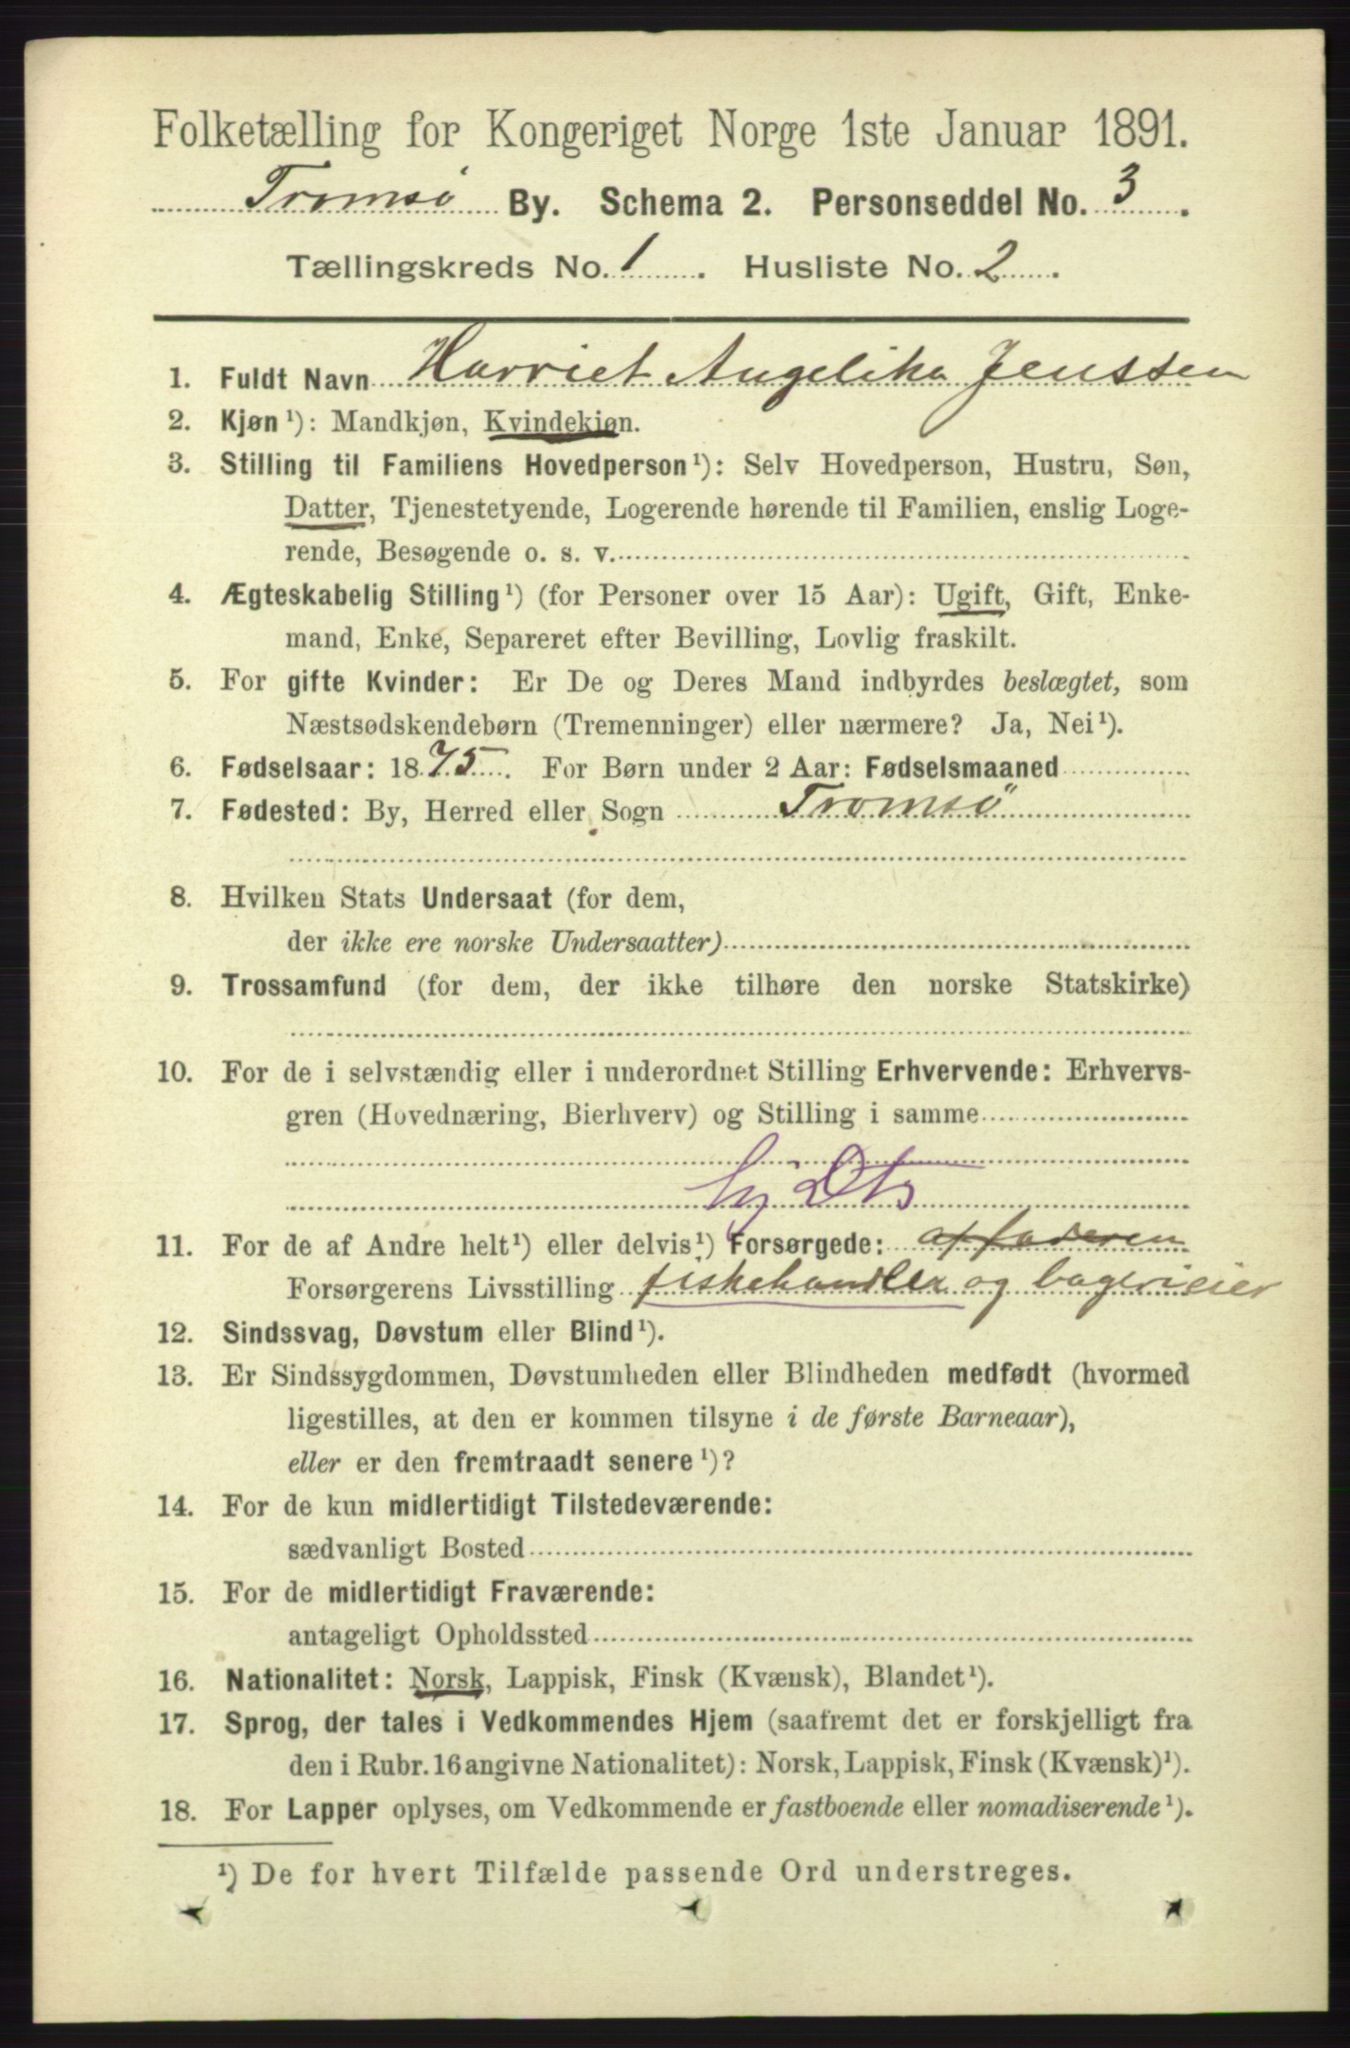 Folketælling for Kongeriget Norge 1ste Januar 1891.
Tromsø By. Schema 2. Personseddel No. 3.
Tællingskreds No. 1. Husliste No. 2.
1. Fuldt Navn Harriet Angelika Jenssen
2. Kjøn¹): Mandkjøn, Kvindekjøn.
3. Stilling til Familiens Hovedperson¹): Selv Hovedperson, Hustru, Søn,
Datter, Tjenestetyende, Logerende hørende til Familien, enslig Loge-
rende, Besøgende o. s. v.
4. Ægteskabelig Stilling¹) (for Personer over 15 Aar): Ugift, Gift, Enke-
mand, Enke, Separeret efter Bevilling, Lovlig fraskilt.
5. For gifte Kvinder: Er De og Deres Mand indbyrdes beslægtet, som
Næstsødskendebørn (Tremenninger) eller nærmere? Ja, Nei¹).
6. Fødselsaar: 1875. For Børn under 2 Aar: Fødselsmaaned
7. Fødested: By, Herred eller Sogn Tromsø
8. Hvilken Stats Undersaat (for dem,
der ikke ere norske Undersaatter)
9. Trossamfund (for dem, der ikke tilhøre den norske Statskirke)
10. For de i selvstændig eller i underordnet Stilling Erhvervende: Erhvervs-
gren (Hovednæring, Bierhverv) og Stilling i samme
11. For de af Andre helt¹) eller delvis¹) Forsørgede: af faderen
Forsørgerens Livsstilling fiskehandler og bagerieier
12. Sindssvag, Døvstum eller Blind¹).
13. Er Sindssygdommen, Døvstumheden eller Blindheden medfødt (hvormed
ligestilles, at den er kommen tilsyne i de første Barneaar),
eller er den fremtraadt senere¹)?
14. For de kun midlertidigt Tilstedeværende:
sædvanligt Bosted
15. For de midlertidigt Fraværende:
antageligt Opholdssted
16. Nationalitet: Norsk, Lappisk, Finsk (Kvænsk), Blandet¹).
17. Sprog, der tales i Vedkommendes Hjem (saafremt det er forskjelligt fra
den i Rubr. 16 angivne Nationalitet): Norsk, Lappisk, Finsk (Kvænsk)¹).
18. For Lapper oplyses, om Vedkommende er fastboende eller nomadiserende¹).
¹) De for hvert Tilfælde passende Ord understreges.